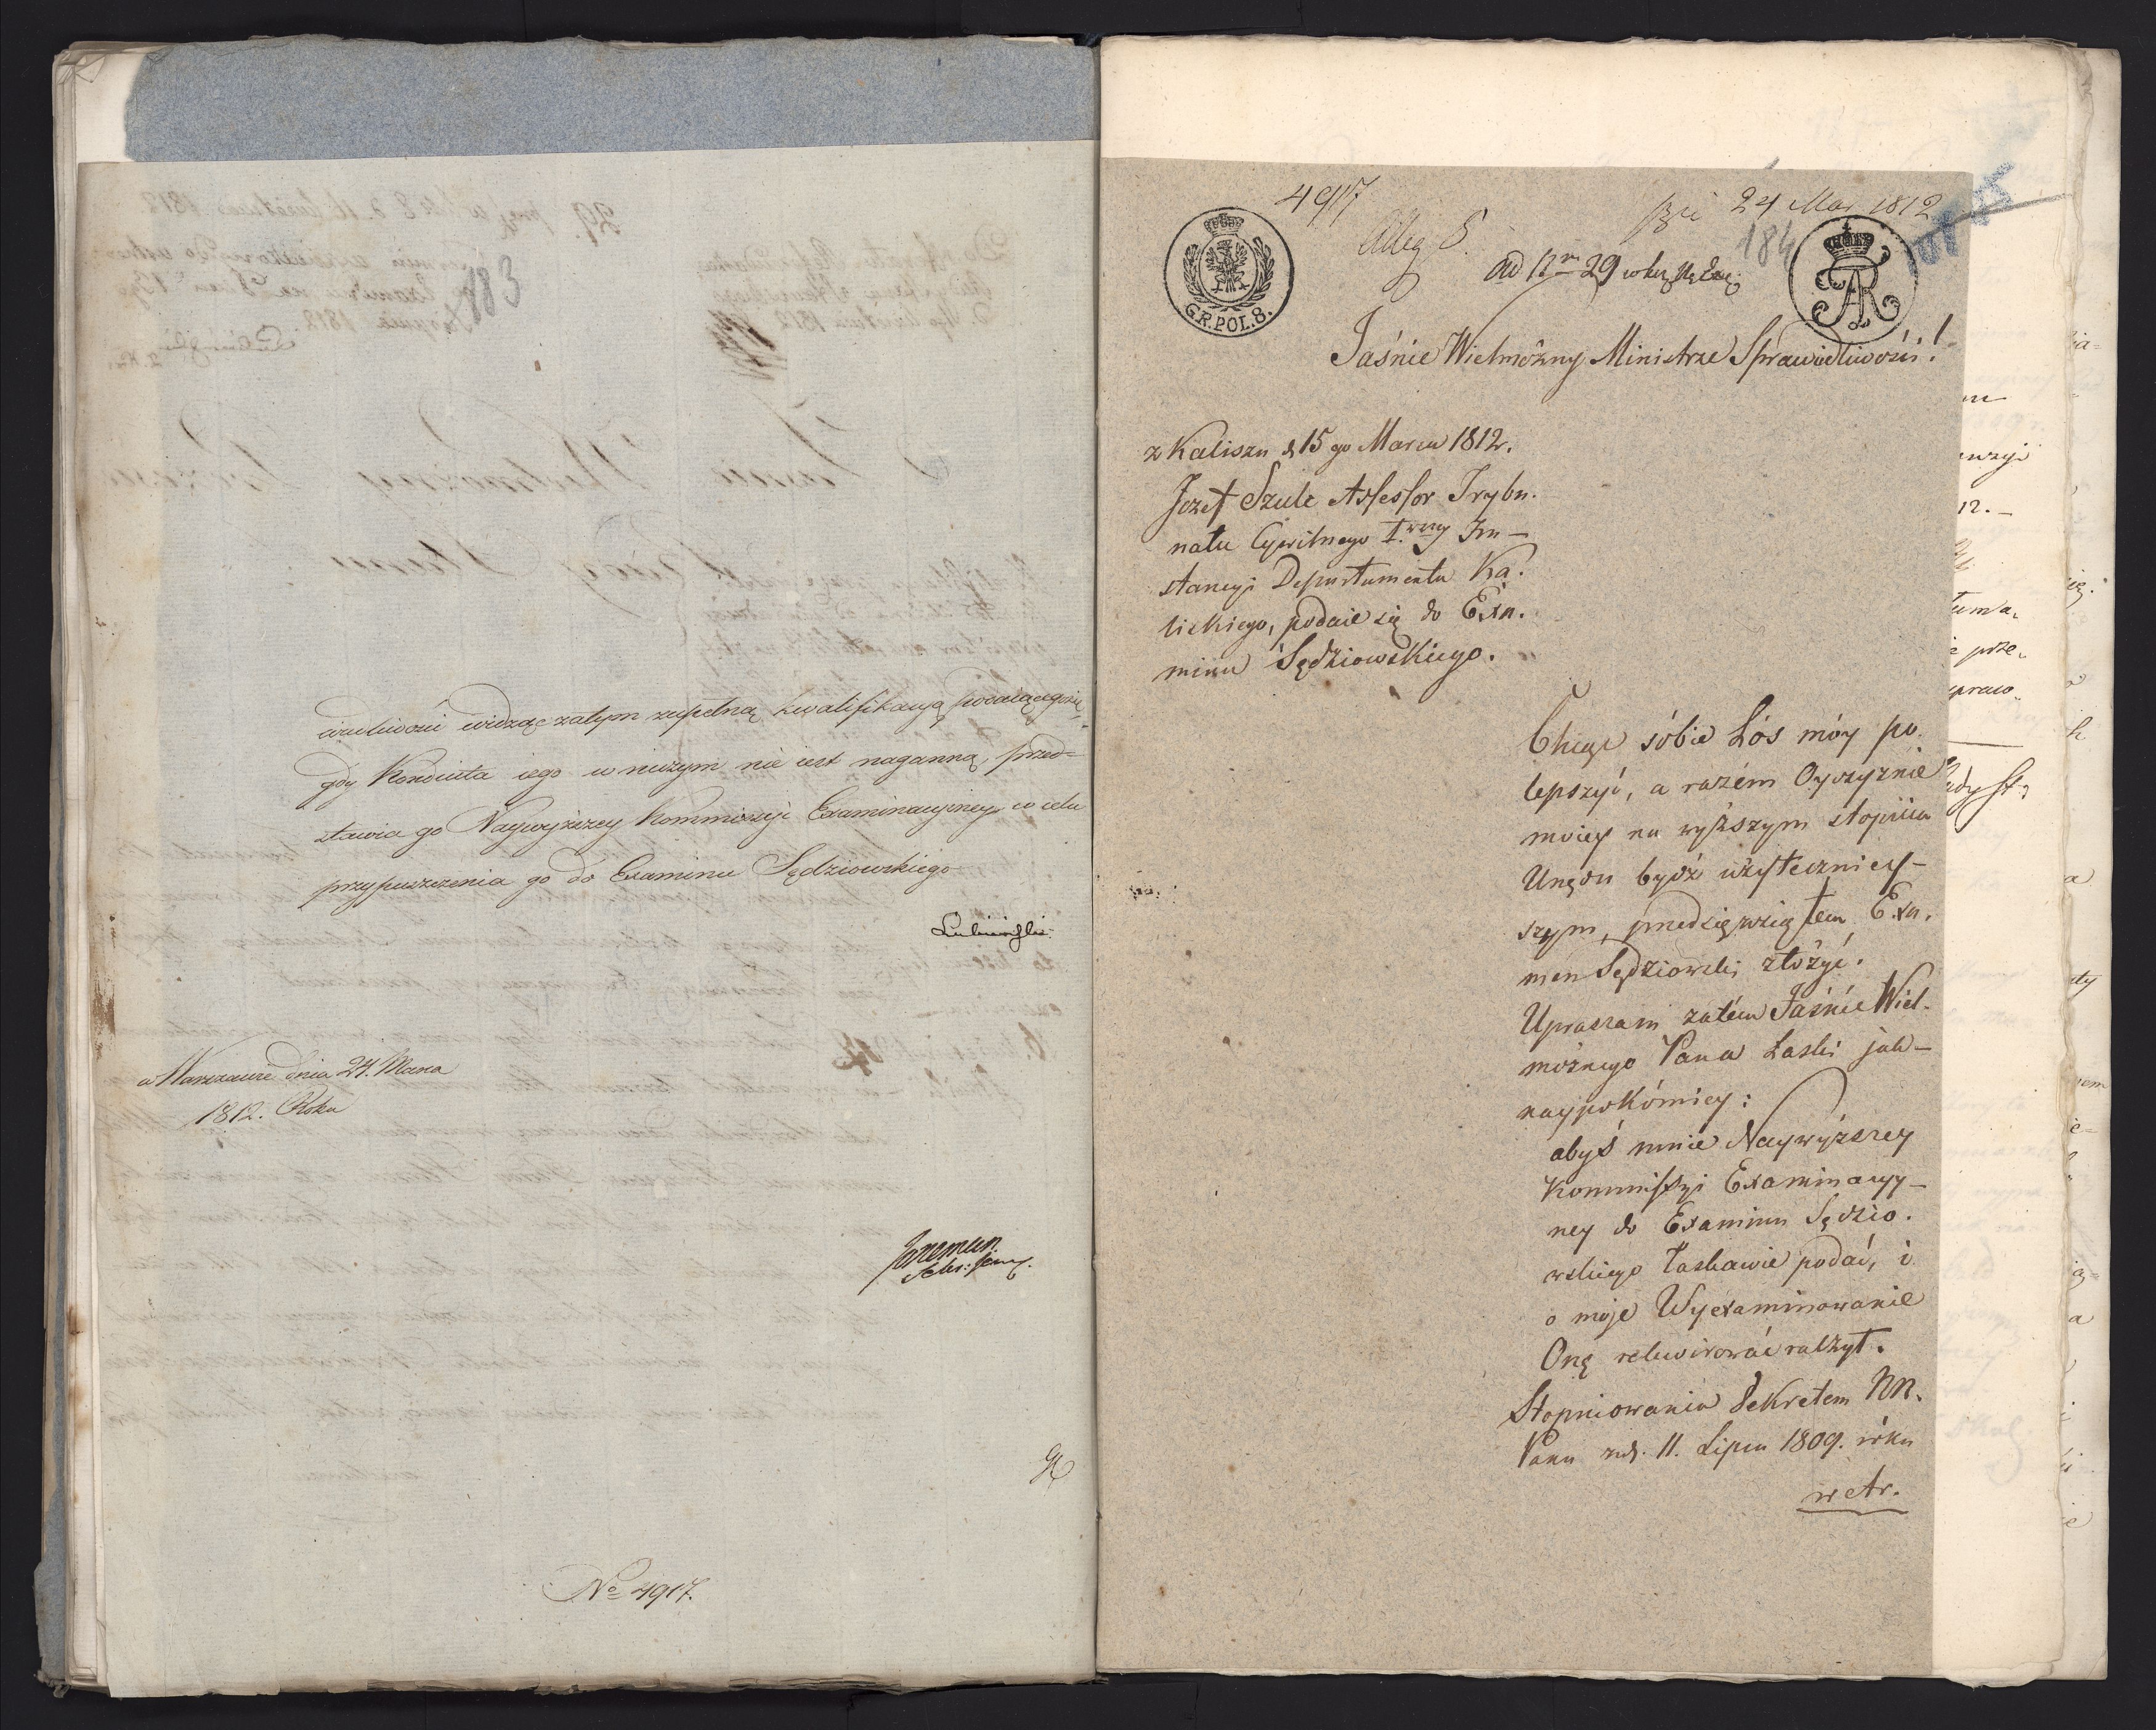 183
wiedliwości widząc zatym zupełną kwalifikacyą podaiącego się
gdy Kondwita iego w niczym nie iest naganną, przed=
stawia go Naywyższey Kommissyi Examinacyiney w celu
przypuszczenia go do Examinu Sędziowskiego
Lubieński
w Warszawie dnia 24. Marca
1812. Roku
No 4917.
4917
24 Mar 1812
184
G.R.POL.8.
Jaśnie Wielmożny Ministrze Sprawiedliwości!
z Kalisza d 15 go Marca 1812.
Jozef Szulc Assessor Trybu.
nału Cywilnego I.wszy In—
stancyi Departamentu Ka.
liskiego, podaie się do Exa.
minu Sędziowskiego.
Chcąc sóbie Łós móy po.
lepszyć, a razém Oyczyznie
moiey na wyższym stopniu
Urzędu bydź użyteczniey—
szym, przedsięwziąłem Exa.
men Sędziowski złożyć.
Upraszam zatém Jaśnie Wiel.
możnego Pana Łaski jak—
naypokórniey:
abyś mnie Naywyższey
Kommissyi Examinacyy—
ney do Examinu Sędzio.
wskiego łaskawie podać, i
o moje Wyexaminowanie
Onę rekwirować raczył.
Stopniowania Dekretem NN.
Pana z d. 11. Lipca 1809. róku